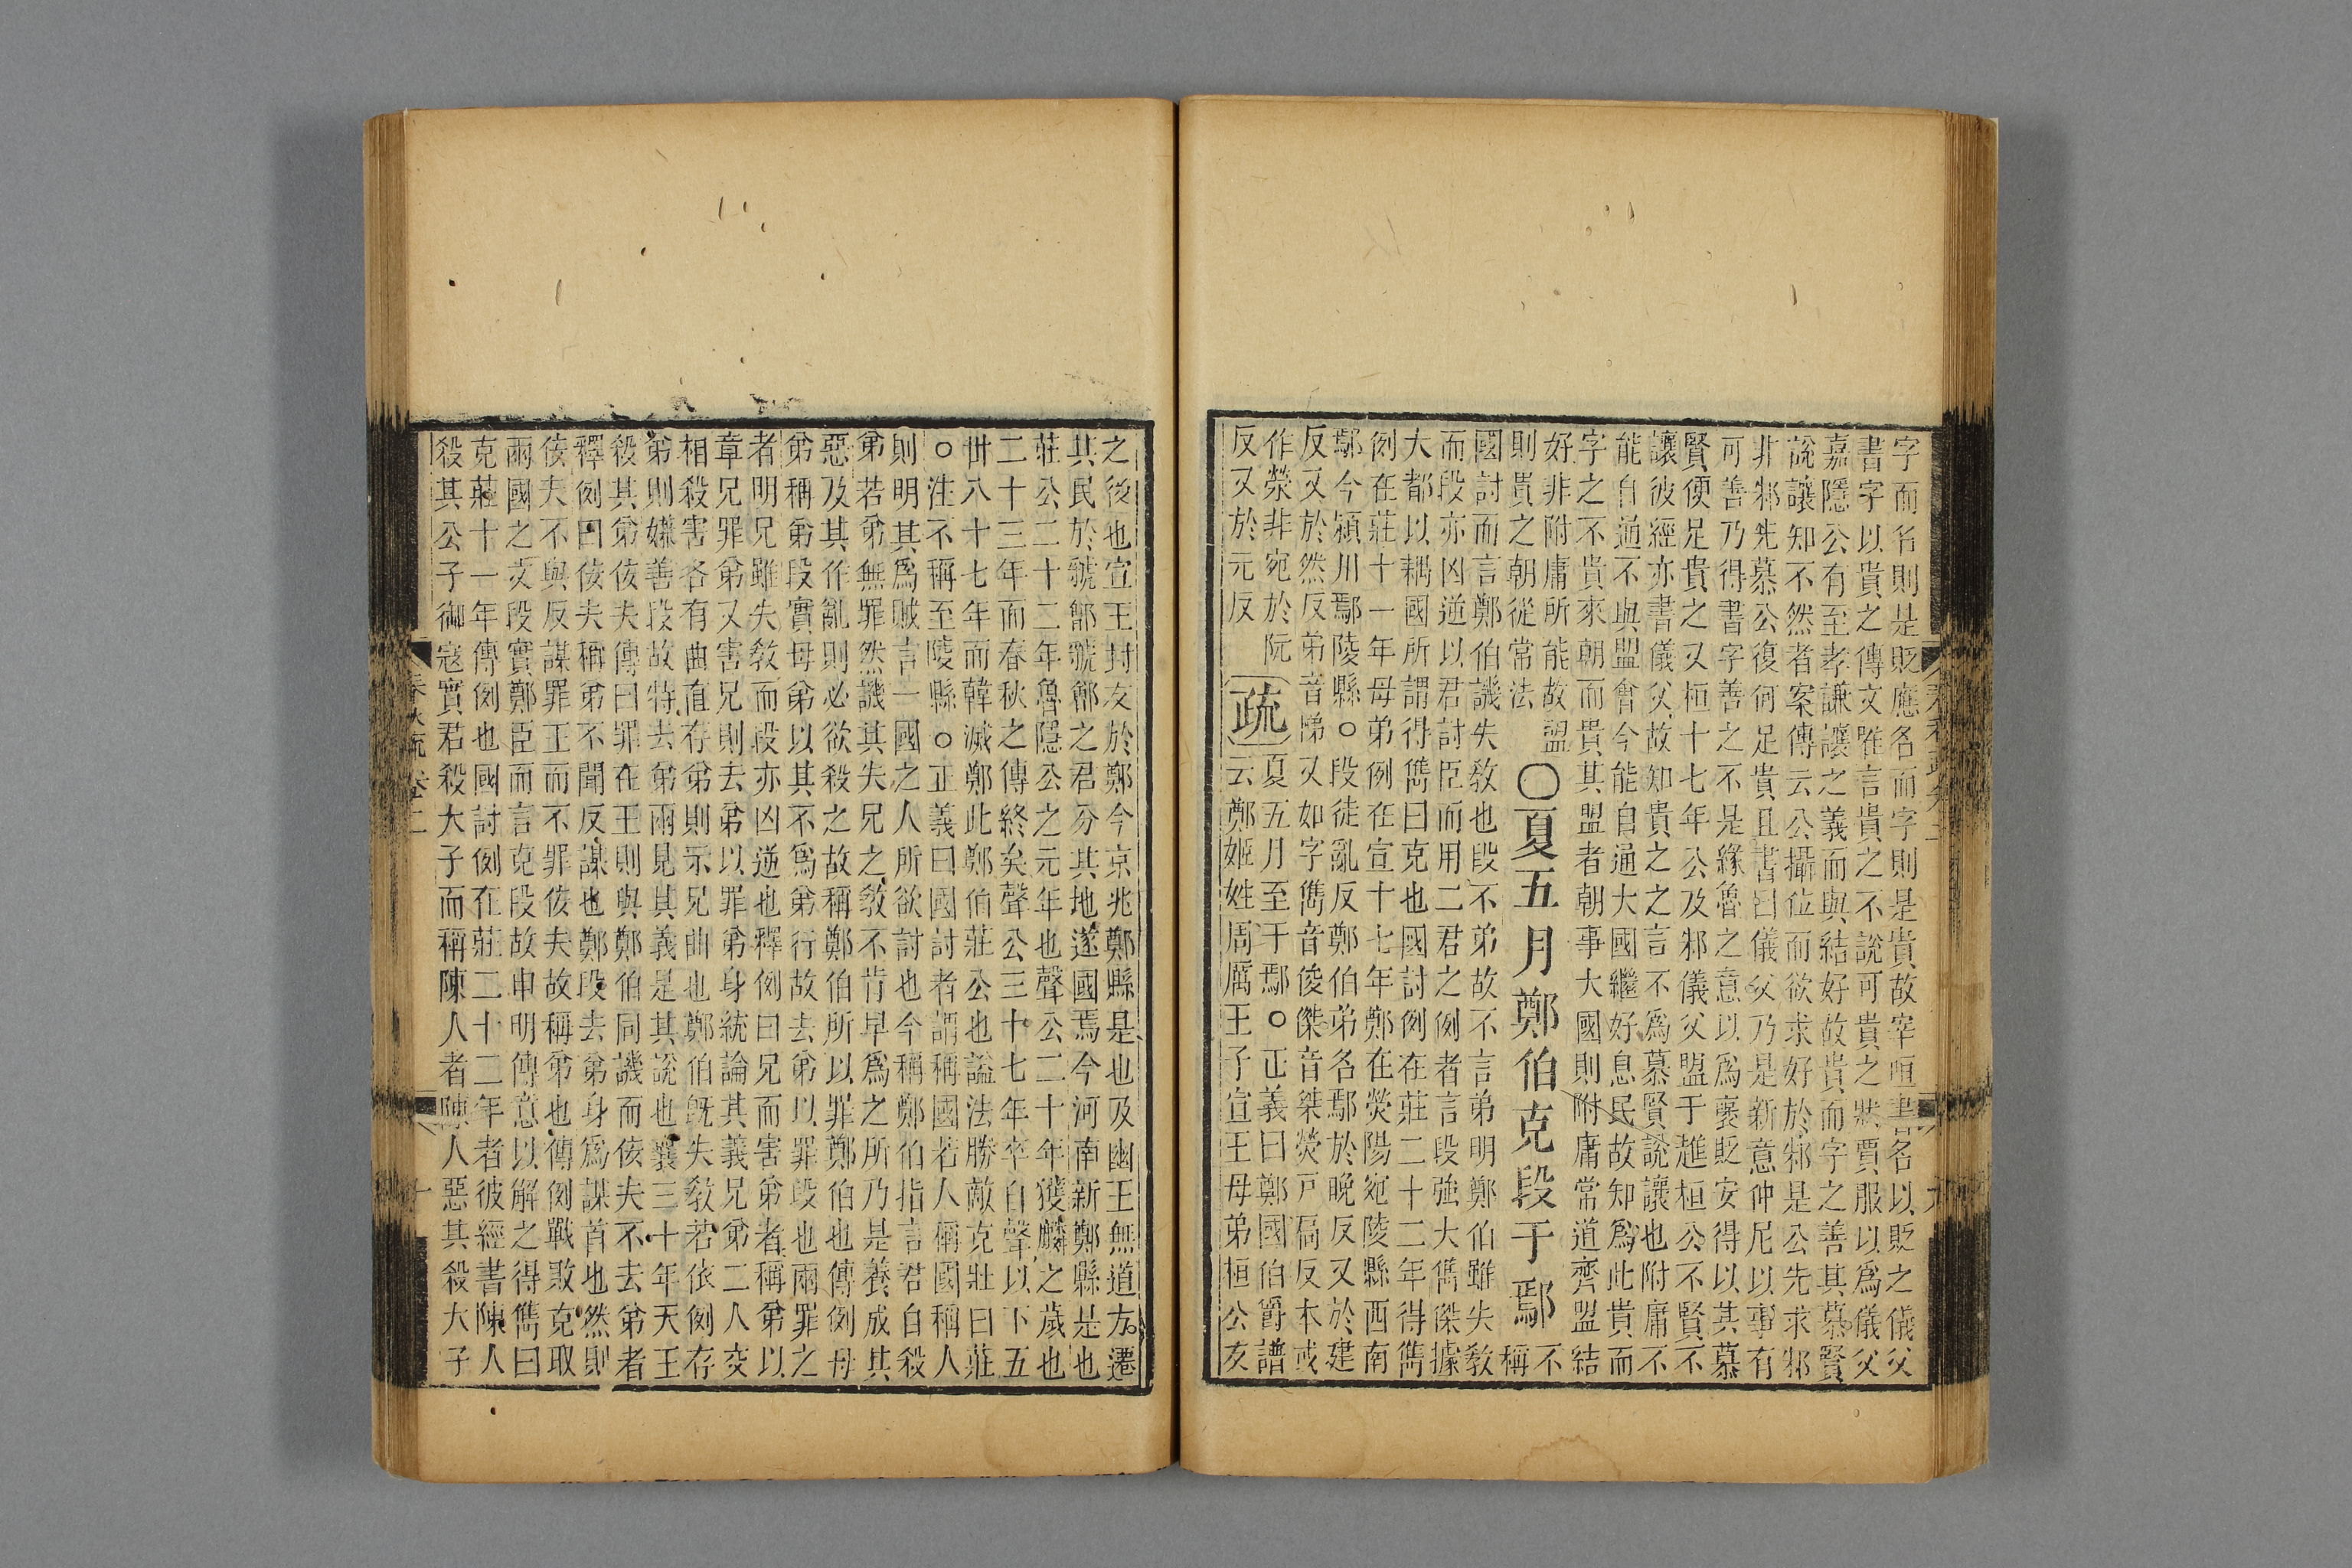 字而名則是貶應名而字則是貴故宰咺書名以貶之儀父
書字以貴之傳文唯言貴之不說可貴之狀賈服以爲儀父
嘉隱公有至孝謙讓之義而與結好故貴而字之善其慕賢
說讓知不然者案傳云公攝位而欲求好於邾是公先求邾
非邾先慕公復何足貴且書曰儀父乃是新意仲尼以事有
可善乃得書字善之不是緣魯之意以爲褒貶安得以其慕
賢便足貴之又桓十七年公及邾儀父盟于趡桓公不賢不
讓彼經亦書儀父故知貴之之言不爲慕賢說讓也附庸不
能自通不與盟會今能自通大國繼好息民故知爲此貴而
字之不貴來朝而貴其盟者朝事大國則附庸常道齊盟結
好非附庸所能故盟
則貴之朝從常法
○夏五月鄭伯克段于鄢
不
稱
國討而言鄭伯譏失敎也段不弟故不言弟明鄭伯雖失敎
而段亦凶逆以君討臣而用二君之例者言段強大儁傑據
大都以耦國所謂得儁曰克也國討例在莊二十二年得儁
例在莊十一年母弟例在宣十七年鄭在熒陽宛陵縣西南
鄢今潁川鄢陵縣○段徒亂反鄭伯弟名鄢於晚反又於建
反又於然反弟音悌又如字儁音俊傑音桀熒戸扃反本或
作滎非宛於阮
反又於元反
疏
夏五月至于鄢○正義曰鄭國伯爵譜
云鄭姬姓周厲王子宣王母弟桓公友
之後也宣王封友於鄭今京兆鄭縣是也及幽王無道方遷
其民於虢鄶虢鄶之君分其地遂國焉今河南新鄭縣是也
莊公二十二年魯隱公之元年也聲公二十年獲麟之歲也
二十三年而春秋之傳終矣聲公三十七年卒自聲以下五
世八十七年而韓滅鄭此鄭伯莊公也謚法勝敵克壯曰莊
○注不稱至陵縣○正義曰國討者謂稱國若人稱國稱人
則明其爲賊言一國之人所欲討也今稱鄭伯指言君自殺
弟若弟無罪然譏其失兄之敎不肯早爲之所乃是養成其
惡及其作亂則必欲殺之故稱鄭伯所以罪鄭伯也傳例母
弟稱弟段實母弟以其不爲弟行故去弟以罪段也兩罪之
者明兄雖失敎而段亦凶逆也釋例曰兄而害弟者稱弟以
章兄罪弟又害兄則去弟以罪弟身統論其義兄弟二人交
相殺害各有曲直存弟則示兄曲也鄭伯旣失敎若依例存
弟則嫌善段故特去弟兩見其義是其說也襄三十年天王
殺其弟佞夫傳曰罪在王則與鄭伯同譏而佞夫不去弟者
釋例曰佞夫稱弟不聞反謀也鄭段去弟身爲謀首也然則
佞夫不與反謀罪王而不罪佞夫故稱弟也傳例戰敗克取
兩國之文段實鄭臣而言克段故申明傳意以解之得儁曰
克莊十一年傳例也國討例在莊二十二年者彼經書陳人
殺其公子御寇實君殺大子而稱陳人者陳人惡其殺大子